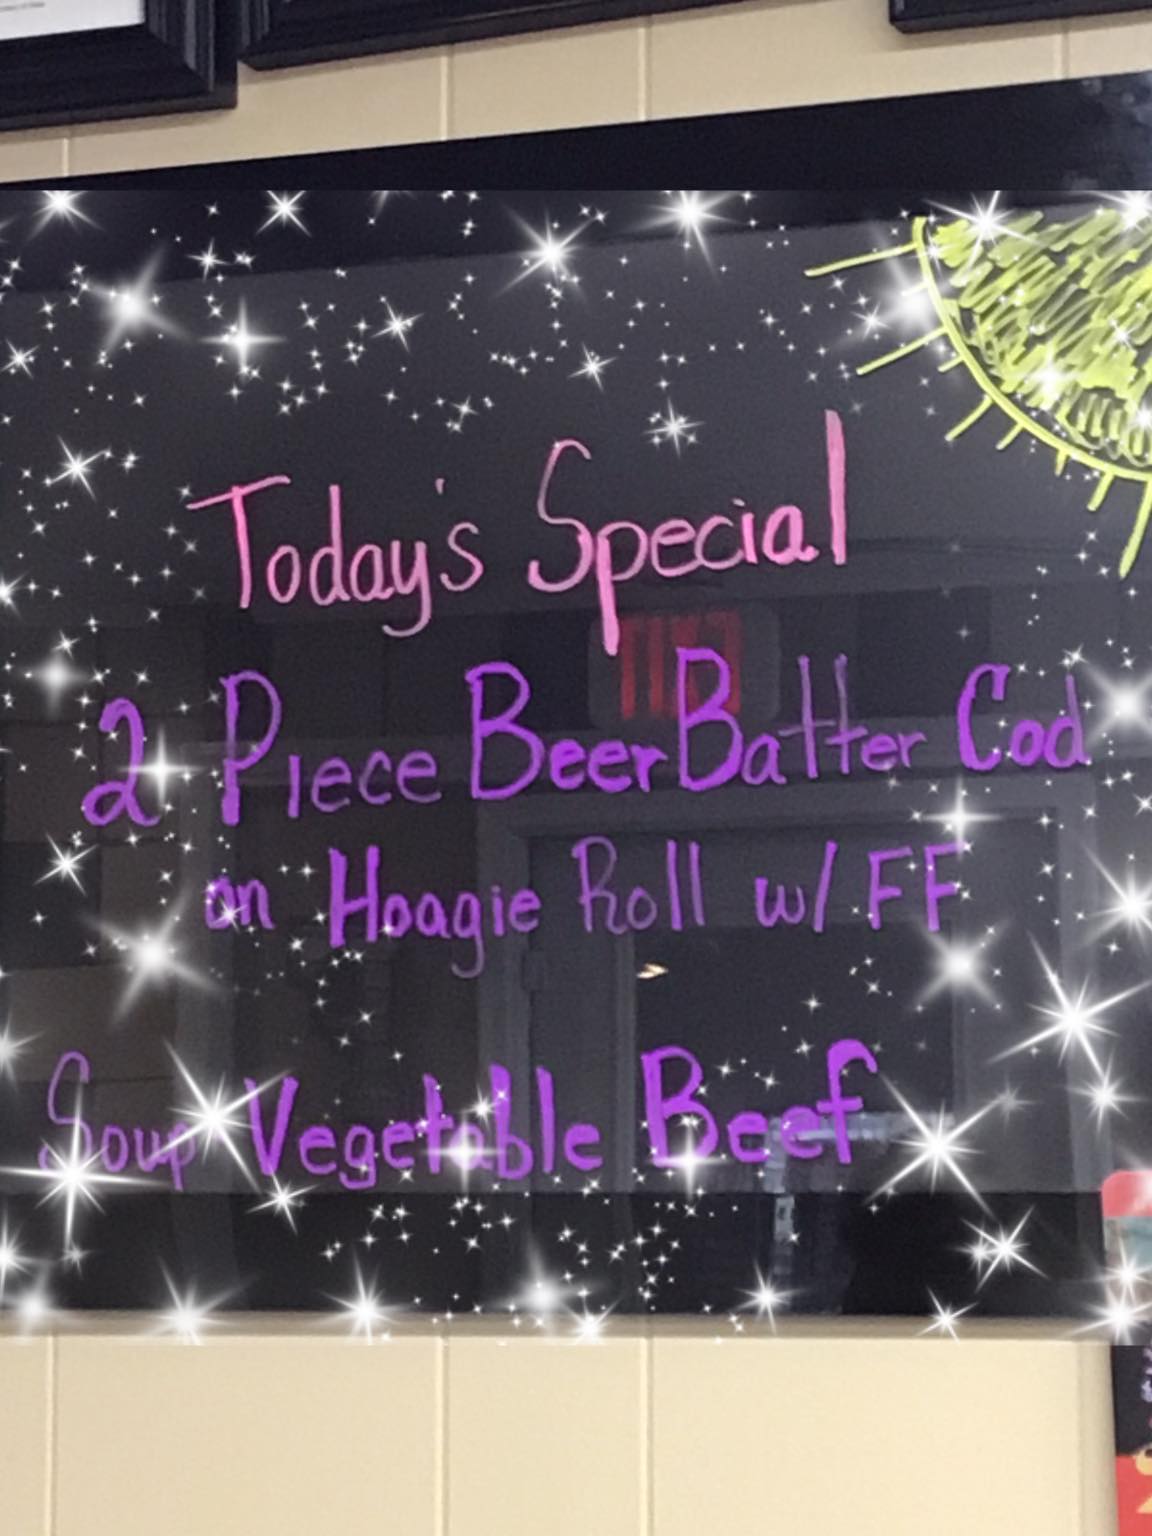 Today's Special
2 Piece Beer Batter Cod
on Hoagie Roll w/ FF
Soup Vegetable Beef